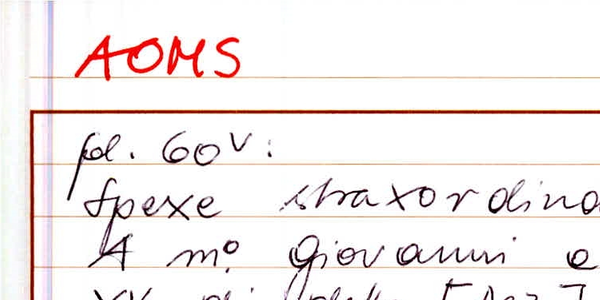 AOMS
fol. 60v:
Spexe straxordina
A mo. Giovanni e
XX di